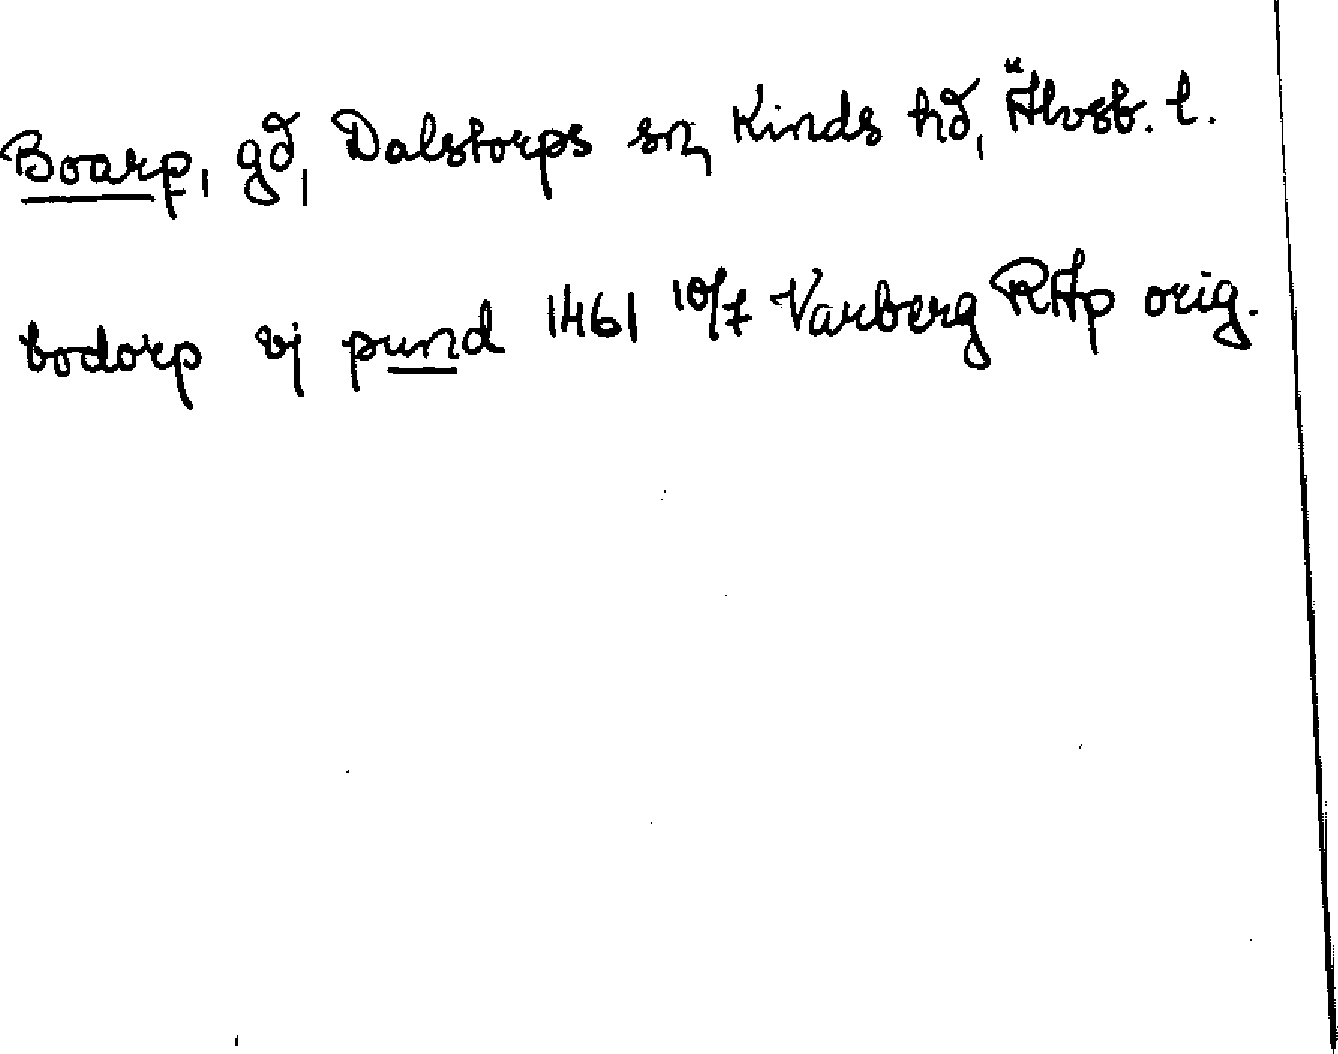 Boarp, gd, Dalstorps sn, Kinds hd, Älvsb. l.
bodorp vj pund 1461 10/7 Varberg RAp orig.